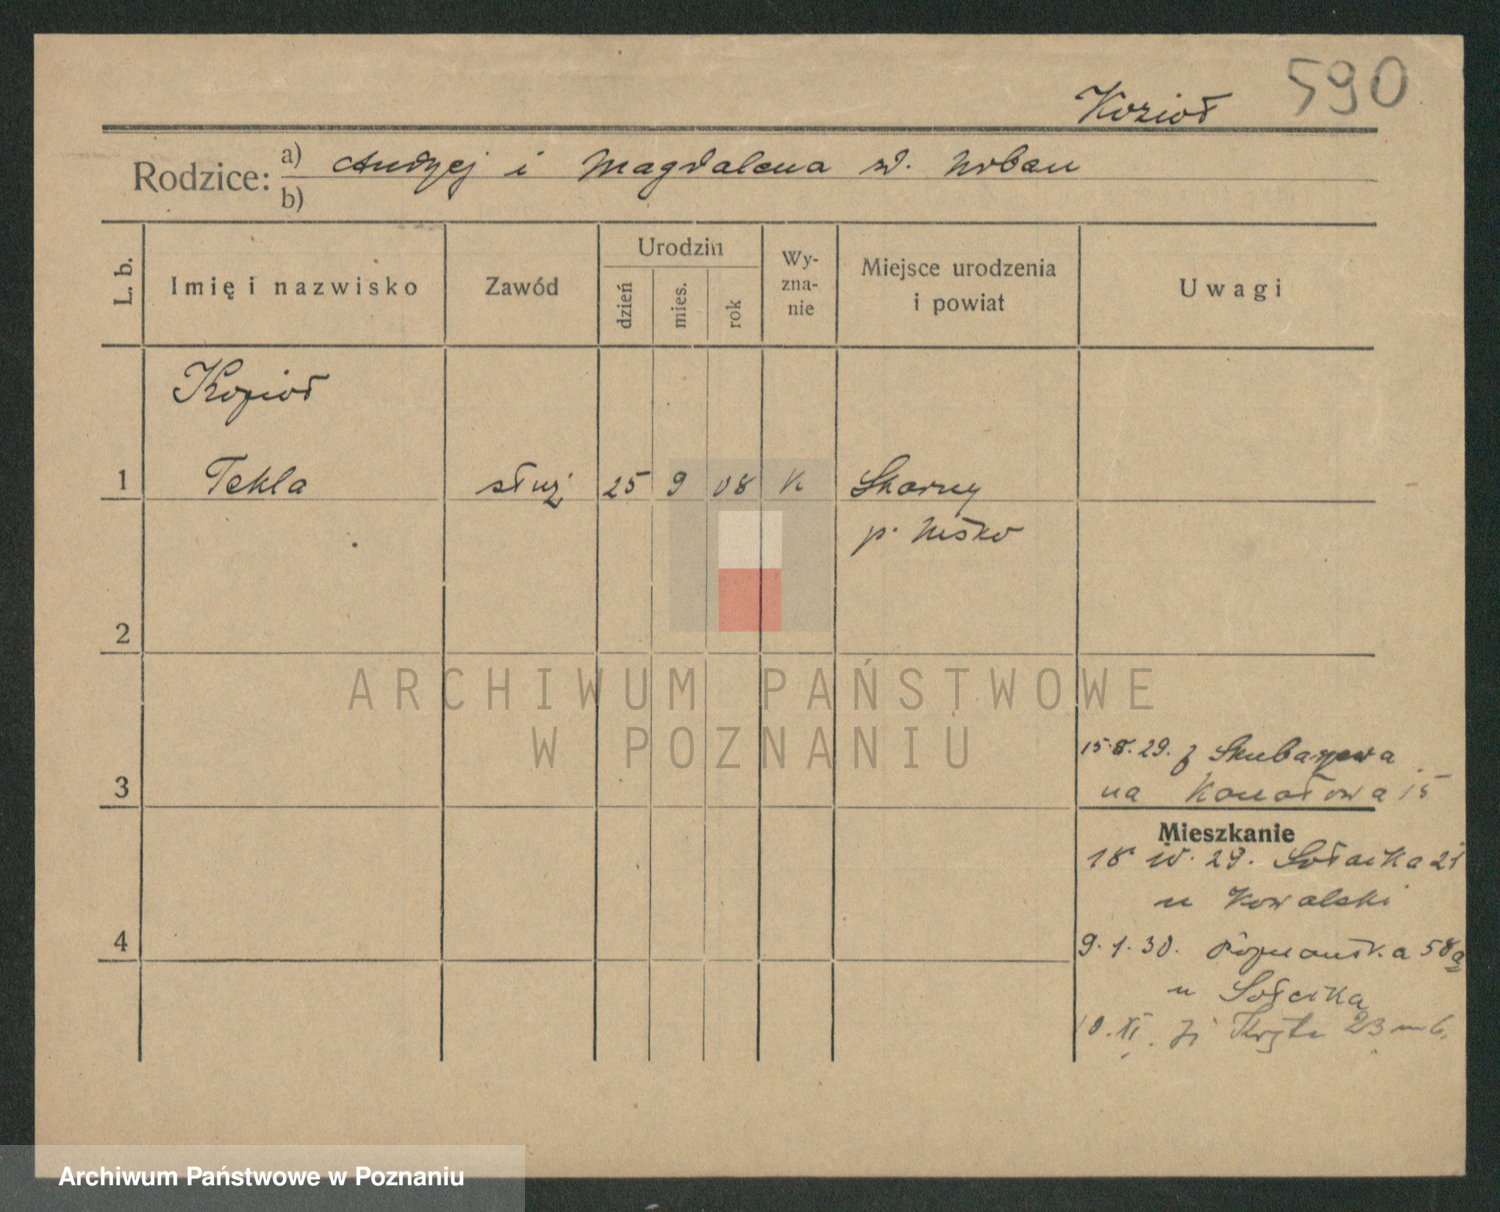 590
Kozioł
Rodzice: a) Andrzej i Magdalena zd. Urban
b)
L. b. Imię i nazwisko Zawód Urodzin dzień mies. rok Wy-zna-nie Miejsce urodzenia i powiat Uwagi
Kozioł
1 Tekla służ 25 9 08 k Skarny
p. Nisko
2
ARCHIWUM PAŃSTWOWE
W POZNANIU
15.8.29. z
3 na 15
Mieszkanie
18 IV. 29. Sołacka 21
u Kowalski
4 9.1.30. Poznańska 58a
u
10. XI. 23 m 6.
Archiwum Państwowe w Poznaniu